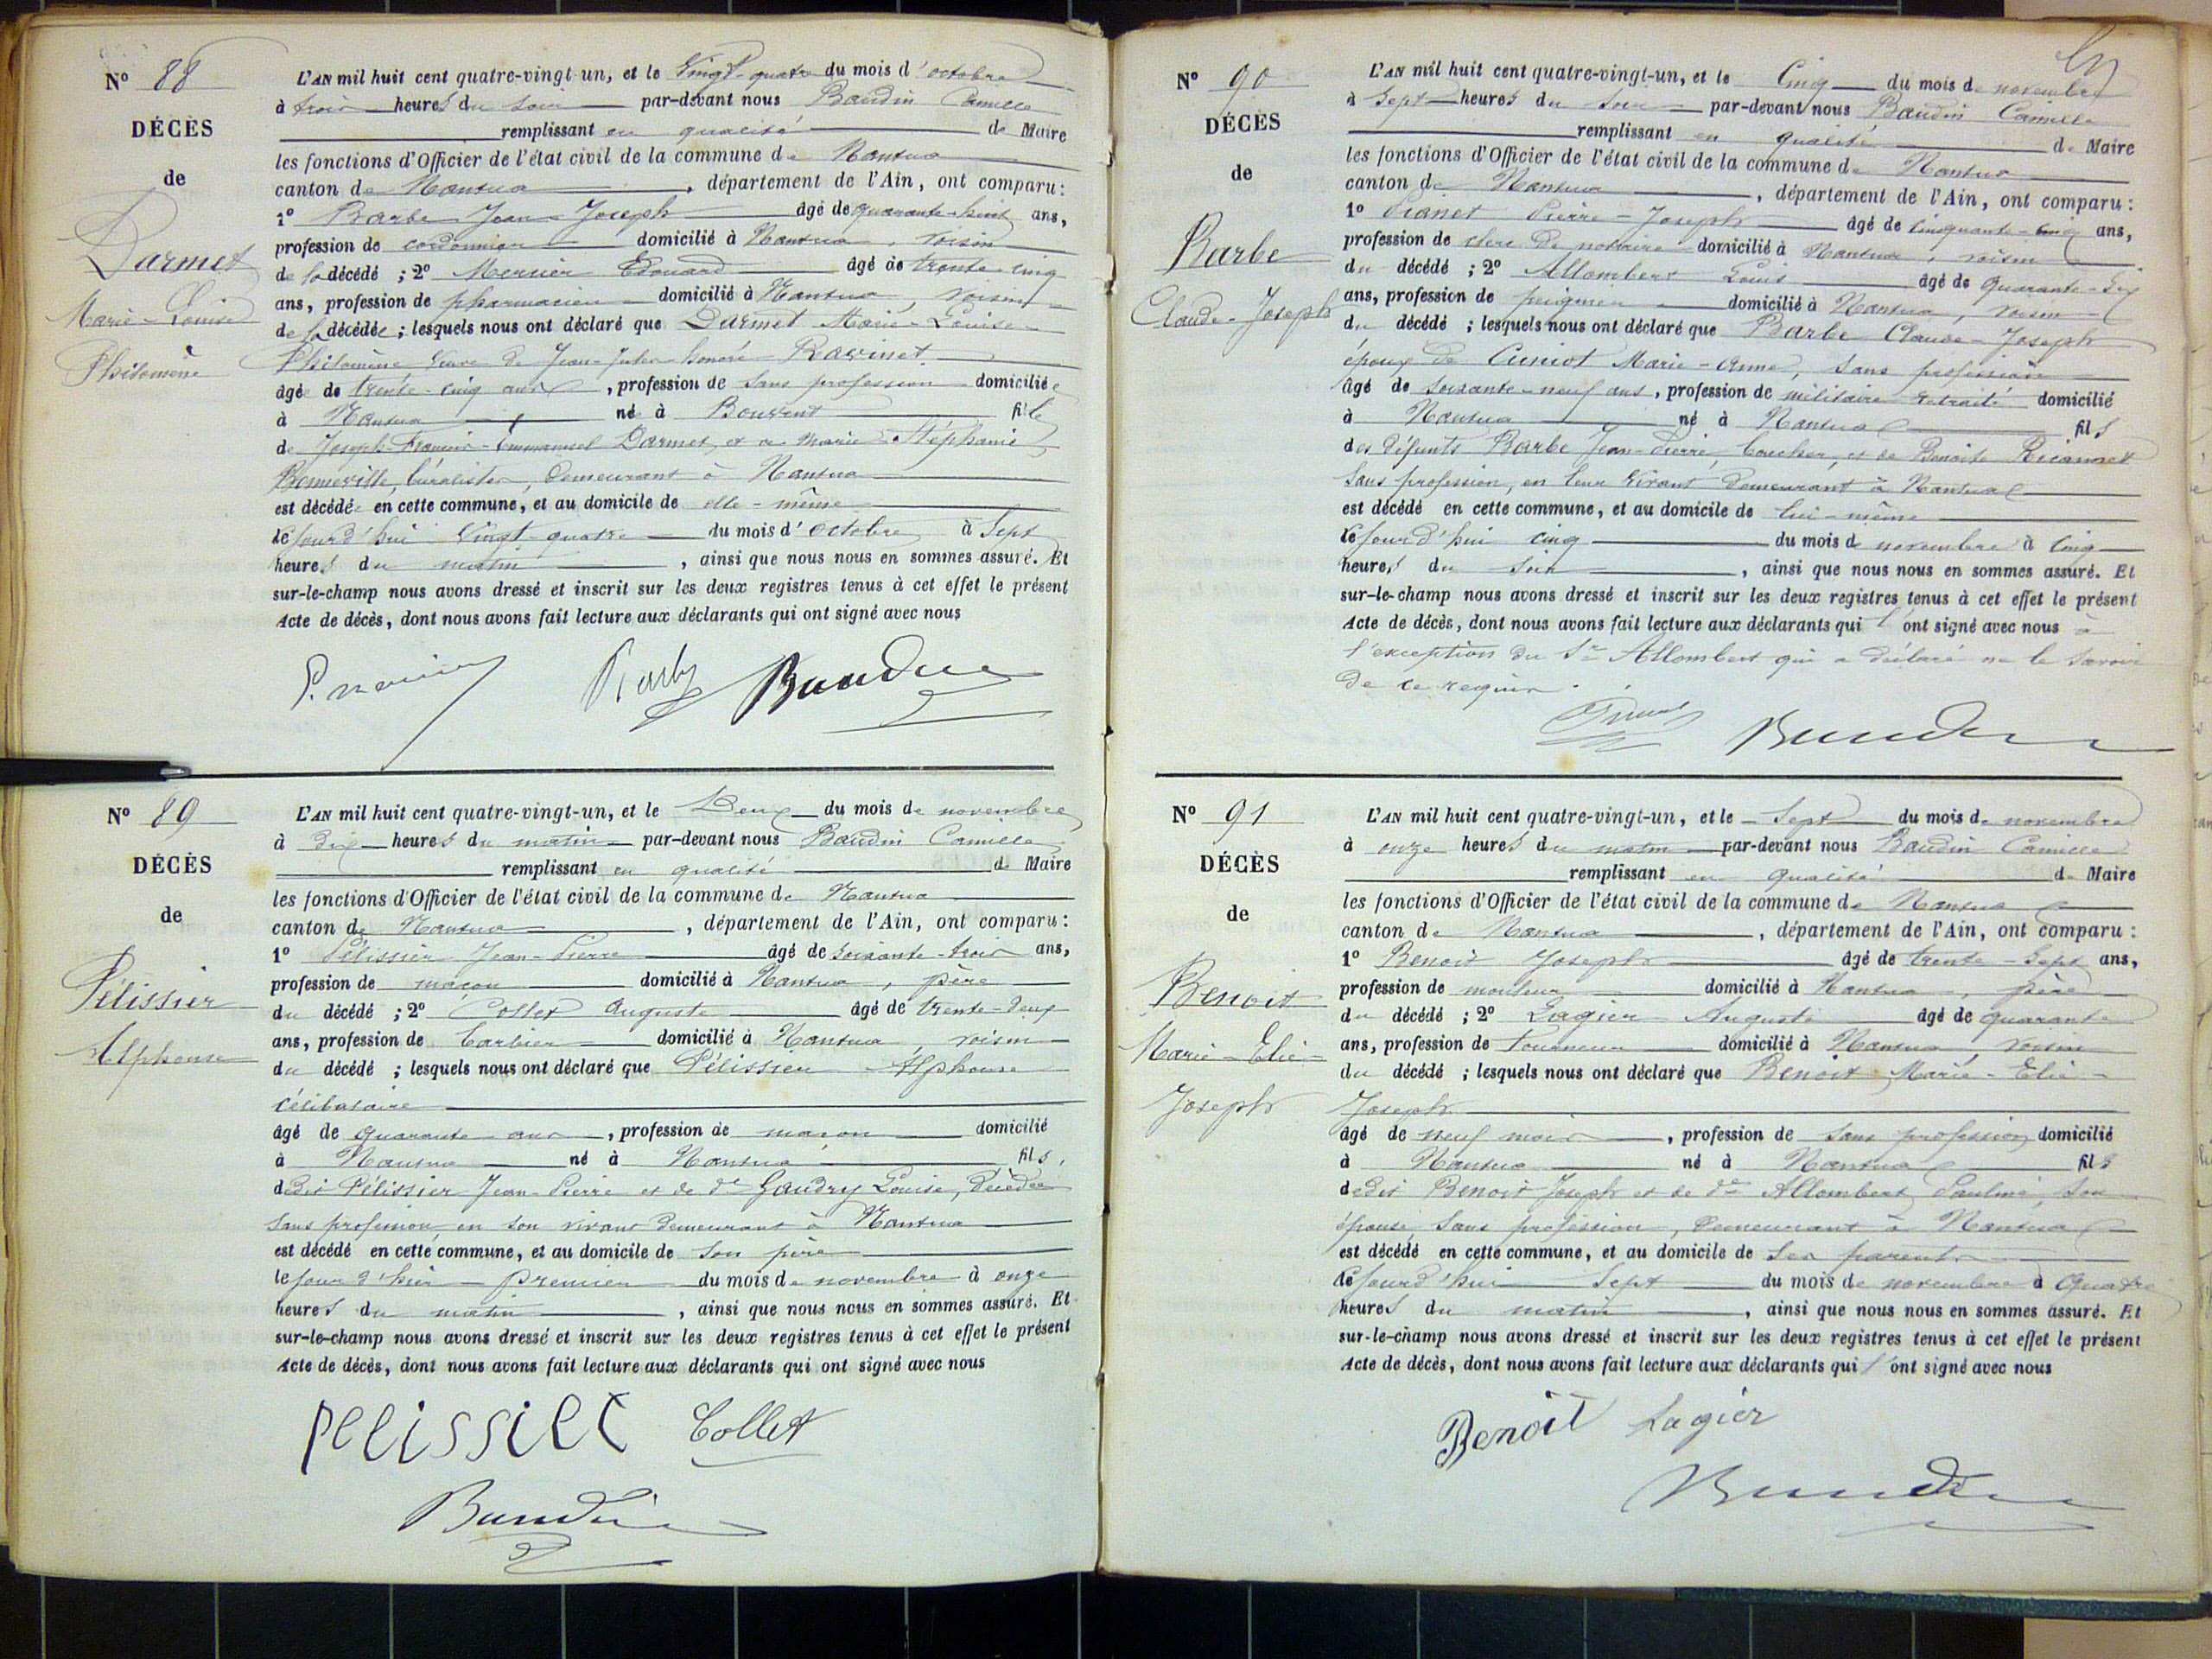 Nº 88
DÉCÈS
de
Darmet
Marie-Louise
Philomène
L'AN mil huit cent quatre-vingt-un, et le Vingt-quatre du mois d'octobre
à trois heures du soir par-devant nous Baudin Camille
remplissant en qualité de Maire
les fonctions d'Officier de l'état civil de la commune de Nantua
canton de Nantua, département de l'Ain, ont comparu:
1º Barbe Jean-Joseph âgé de quarante-huit ans,
profession de cordonnier domicilié à Nantua, voisin
de la décédé; 2º Mercier Edouard âgé de trente-cinq
ans, profession de pharmacien domicilié à Nantua, voisin
de la décédée; lesquels nous ont déclaré que Darmet Marie-Louise-
Philomène veuve de Jean-Jules-honoré Ravinet
âgé de trente-cinq ans, profession de sans profession domiciliée
à Nantua né à fille
de Joseph-François-Emmanuel Darmet, et de Marie-Stéphanie
Bonneville, buralistes, demeurant à Nantua
est décédée en cette commune, et au domicile de elle-même
le jourd'hui vingt-quatre du mois d'octobre à Sept
heures du matin, ainsi que nous nous en sommes assuré. Et
sur-le-champ nous avons dressé et inscrit sur les deux registres tenus à cet effet le présent
Acte de décès, dont nous avons fait lecture aux déclarants qui ont signé avec nous
Barbe Baudin
Nº 89
DÉCÈS
de
Pélissier
Alphonse
L'AN mil huit cent quatre-vingt-un, et le Deux du mois de novembre
à dix heures du matin par-devant nous Baudin Camille
remplissant en qualité de Maire
les fonctions d'Officier de l'état civil de la commune de Nantua
canton de Nantua, département de l'Ain, ont comparu:
1º Pélissier Jean-Pierre âgé de soixante-trois ans,
profession de maçon domicilié à Nantua, père
du décédé; 2º Collet Auguste âgé de trente-deux
ans, profession de barbier domicilié à Nantua, voisin
du décédé; lesquels nous ont déclaré que Pélissier Alphonse
célibataire
âgé de quarante ans, profession de maçon domicilié
à Nantua né à Nantua fils,
dedit Pélissier Jean-Pierre et de de Gaudry Louise, décédée
sans profession en son vivant demeurant à Nantua
est décédé en cette commune, et au domicile de son père
le jour d'hier premier du mois de novembre à onze
heures du matin, ainsi que nous nous en sommes assuré. Et
sur-le-champ nous avons dressé et inscrit sur les deux registres tenus à cet effet le présent
Acte de décès, dont nous avons fait lecture aux déclarants qui ont signé avec nous
pelissier Collet
Baudin
Nº 90
DÉCÈS
de
Barbe
Claude-Joseph
L'AN mil huit cent quatre-vingt-un, et le Cinq du mois de novembre
à Sept heures du soir par-devant nous Baudin Camille
remplissant en qualité de Maire
les fonctions d'Officier de l'état civil de la commune de Nantua
canton de Nantua, département de l'Ain, ont comparu:
1º Pierre-Joseph âgé de cinquante-cinq ans,
profession de clerc de notaire domicilié à Nantua, voisin
du décédé; 2º Allombert Louis âgé de quarante-six
ans, profession de peignier domicilié à Nantua, voisin
du décédé; lesquels nous ont déclaré que Barbe Claude-Joseph
époux de Cuniot Marie-Anne, sans profession
âgé de soixante-neuf ans, profession de militaire retraité domicilié
à Nantua né à Nantua fils
des défunts Barbe Jean-Pierre, boucher, et de Benoite
sans profession, en leur vivant demeurant à Nantua
est décédé en cette commune, et au domicile de lui-même
le jourd'hui cinq du mois de novembre à cinq
heures du soir, ainsi que nous nous en sommes assuré. Et
sur-le-champ nous avons dressé et inscrit sur les deux registres tenus à cet effet le présent
Acte de décès, dont nous avons fait lecture aux déclarants qui l'ont signé avec nous à
l'exception du Sr Allombert qui a déclaré ne le savoir
de ce requis.
Baudin
Nº 91
DÉCÈS
de
Benoit
Marie-Elie-
Joseph
L'AN mil huit cent quatre-vingt-un, et le Sept du mois de novembre
à onze heures du matin par-devant nous Baudin Camille
remplissant en qualité de Maire
les fonctions d'Officier de l'état civil de la commune de Nantua
canton de Nantua, département de l'Ain, ont comparu:
1º Benoit Joseph âgé de trente-Sept ans,
profession de mouleur domicilié à Nantua, père
du décédé; 2º Lagier Auguste âgé de quarante
ans, profession de tourneur domicilié à Nantua, voisin
du décédé; lesquels nous ont déclaré que Benoit Marie-Elie-
Joseph
âgé de neuf mois, profession de sans profession domicilié
à Nantua né à Nantua fils
dedit Benoit Joseph et de de Allombert Pauline, son
épouse, sans profession, demeurant à Nantua
est décédé en cette commune, et au domicile de ses parents
le jourd'hui Sept du mois de novembre à quatre
heures du matin, ainsi que nous nous en sommes assuré. Et
sur-le-champ nous avons dressé et inscrit sur les deux registres tenus à cet effet le présent
Acte de décès, dont nous avons fait lecture aux déclarants qui l'ont signé avec nous
Benoit Lagier
Baudin